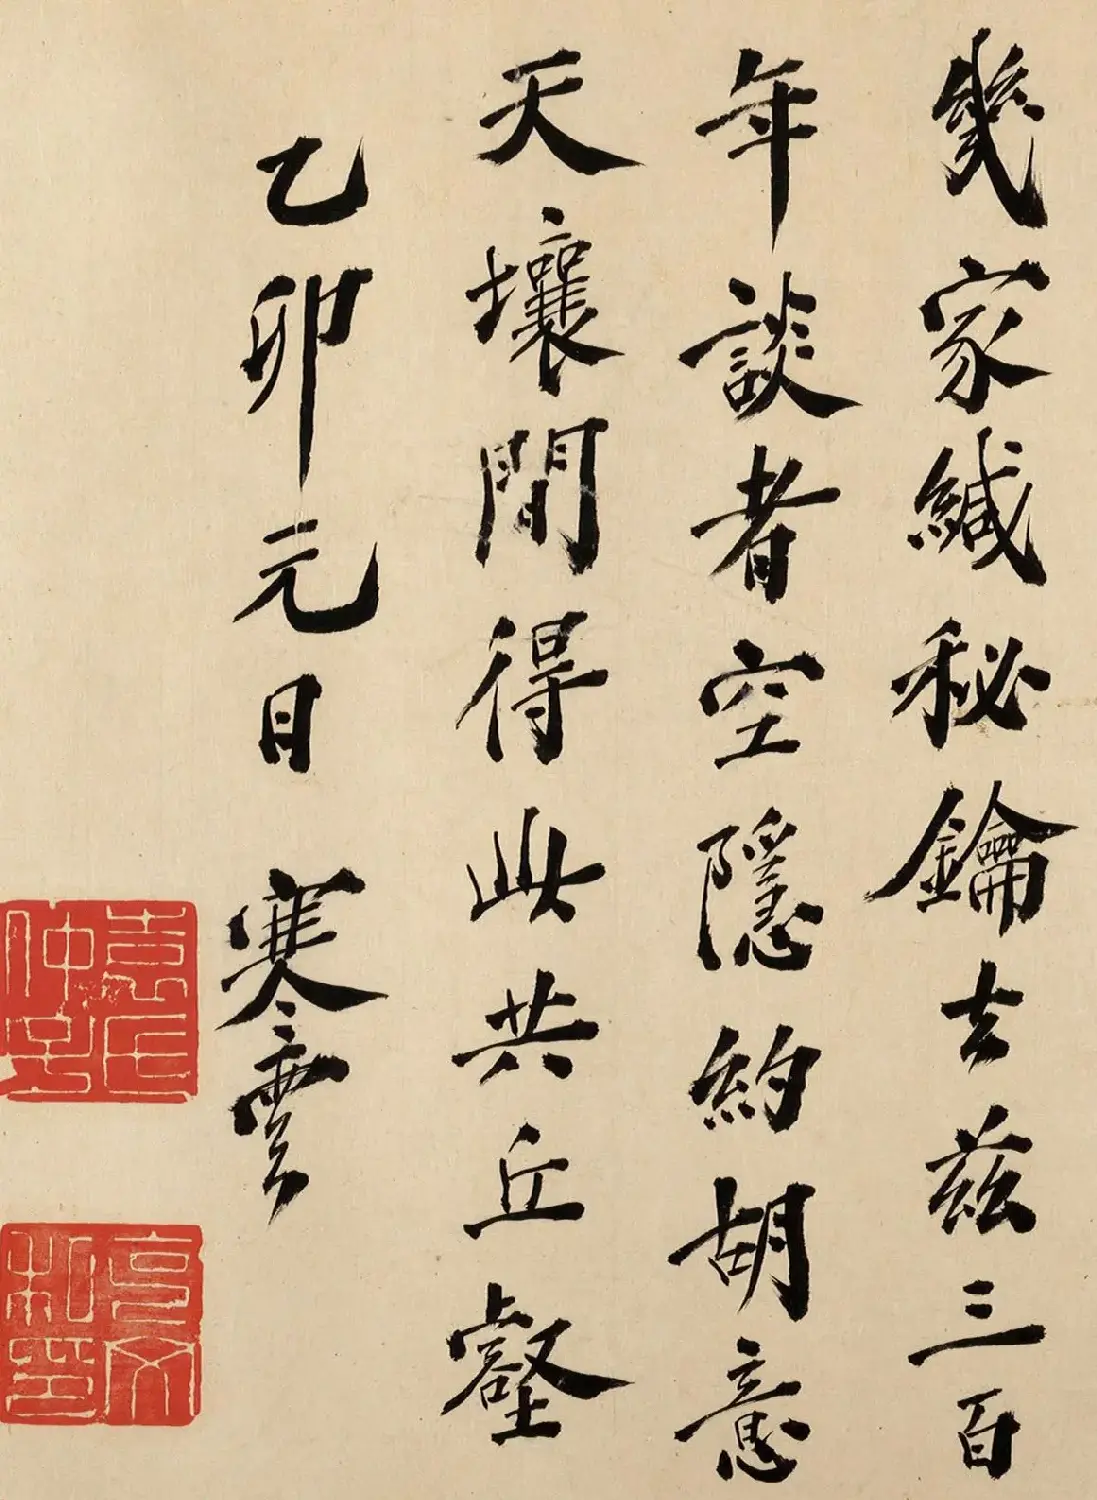 幾家緘秘鑰去茲三百
年談者空隱約胡意
天壤間得此共丘壑
乙卯元日 寒雲